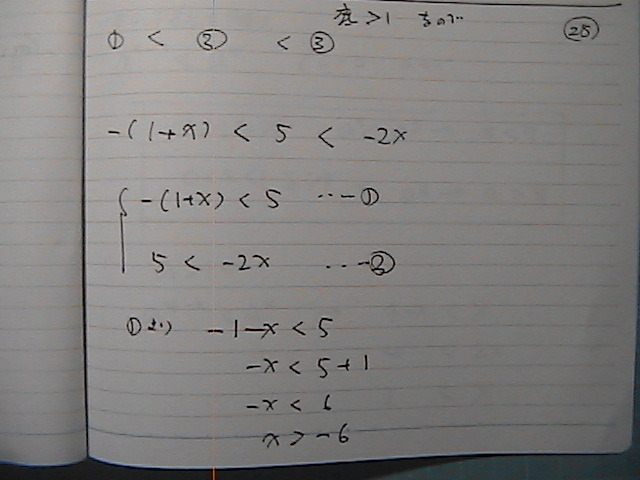 底>1 なので
㉕
① < ② < ③
-(1+x) < 5 < -2x
-(1+x) < 5 ... ①
5 < -2x ... ②
①より -1-x < 5
-x < 5+1
-x < 6
x > -6